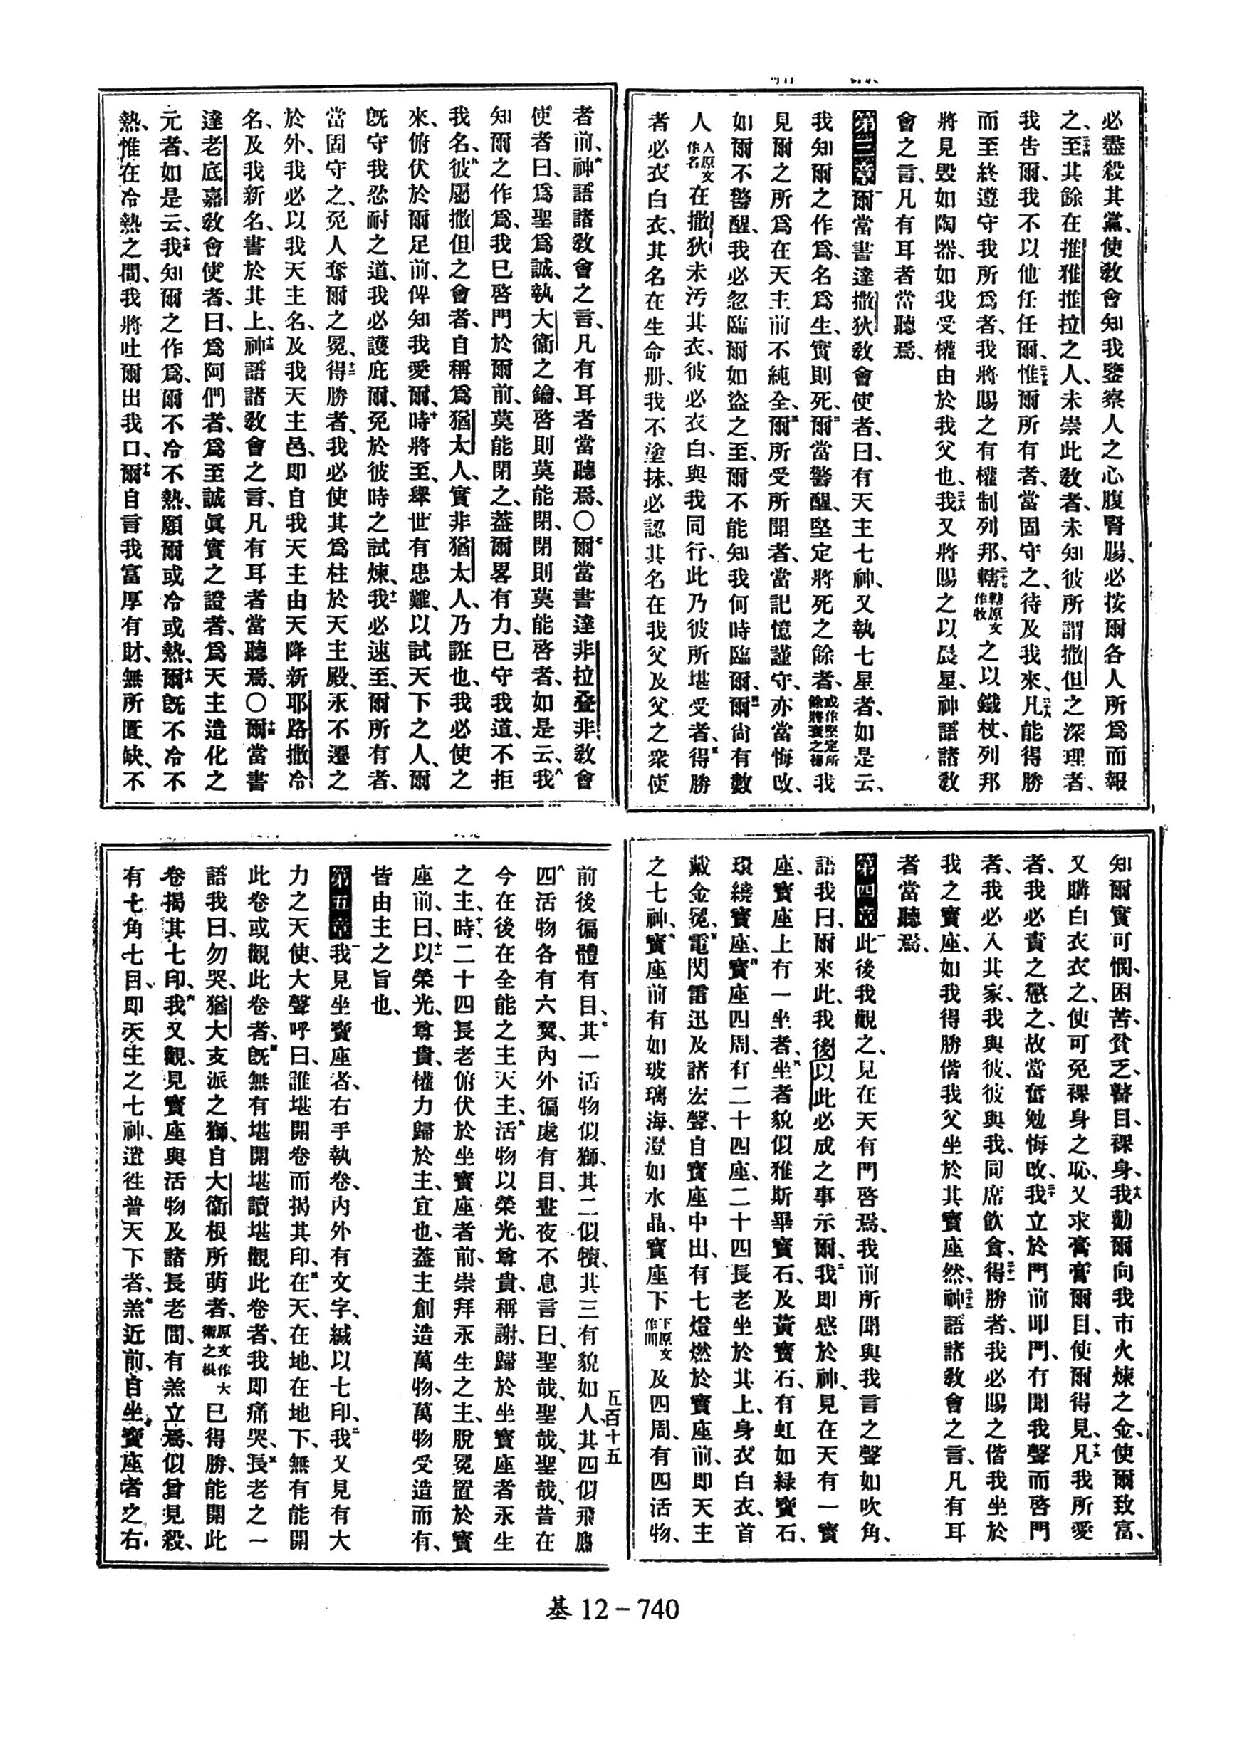 必盡殺其黨、使教會知我鑒察人之心腹腎腸、必按爾各人所爲而報
之、至其餘在推雅推拉之人、未崇此教者、未知彼所謂撒但之深理者、
我告爾、我不以他任任爾、惟爾所有者、當固守之、待及我來、凡能得勝
而至終遵守我所爲者、我將賜之有權制列邦、轄轄原文作牧之以鐵杖、列邦
將見毀如陶器、如我受權由於我父也、我又將賜之以晨星、神語諸教
會之言、凡有耳者當聽焉、
第三章爾當書達撒狄教會使者、曰、有天主七神、又執七星者、如是云、
我知爾之作爲、名爲生、實則死、爾當警醒、堅定將死之餘者、或作堅定所餘將衰之德我
見爾之所爲、在天主前不純全、爾所受所聞者、當記憶謹守、亦當悔改、
如爾不警醒、我必忽臨爾如盜之至、爾不能知我何時臨爾、爾尙有數
人人原文作名在撒狄未污其衣、彼必衣白、與我同行、此乃彼所堪受者、得勝
者必衣白衣、其名在生命册、我不塗抹、必認其名在我父及父之衆使
者前、神語諸教會之言、凡有耳者當聽焉、○爾當書達非拉叠非教會
使者曰、爲聖爲誠、執大衛之鑰、啓則莫能閉、閉則莫能啓者、如是云、我
知爾之作爲、我已啓門於爾前、莫能閉之、蓋爾畧有力、已守我道、不拒
我名、彼屬撒但之會者、自稱爲猶太人、實非猶太人、乃誑也、我必使之
來、俯伏於爾足前、俾知我愛爾、時將至、舉世有患難、以試天下之人、爾
旣守我忍耐之道、我必護庇爾、免於彼時之試煉、我必速至、爾所有者、
當固守之、免人奪爾之冕、得勝者、我必使其爲柱於天主殿、永不遷之
於外、我必以我天主名、及我天主邑、即自我天主由天降新耶路撒冷
名、及我新名、書於其上、神語諸教會之言、凡有耳者當聽焉、○爾當書
達老底嘉教會使者、曰、爲阿們者、爲至誠眞實之證者、爲天主造化之
元者、如是云、我知爾之作爲、爾不冷不熱、願爾或冷或熱、爾旣不冷不
熱、惟在冷熱之間、我將吐爾出我口、爾自言我富厚有財、無所匱缺、不
知爾實可憫、困苦、貧乏、瞽目、裸身、我勸爾向我市火煉之金、使爾致富、
又購白衣衣之、使可免裸身之恥、又求膏膏爾目、使爾得見、凡我所愛
者、我必責之懲之、故當奮勉悔改、我立於門前叩門、有聞我聲而啓門
者、我必入其家、我與彼、彼與我、同席飮食、得勝者、我必賜之偕我坐於
我之寶座、如我得勝、偕我父坐於其寶座然、神語諸教會之言、凡有耳
者當聽焉、
第四章此後我觀之、見在天有門啓焉、我前所聞與我言之聲如吹角、
語我曰、爾來此、我後以此必成之事示爾、我即感於神、見在天有一寶
座、寶座上有一坐者、坐者貌似雅斯畢寶石、及黃寶石、有虹如綠寶石、
環繞寶座、寶座四周、有二十四座、二十四長老坐於其上、身衣白衣、首
戴金冕、電閃雷迅及諸宏聲、自寶座中出、有七燈燃於寶座前、即天主
之七神、寶座前有如玻璃海、澄如水晶、寶座下下原文作間及四周、有四活物、
前後徧體有目、其一活物似獅、其二似犢、其三有貌如人、其四似飛鷹
四活物各有六翼、內外徧處有目、晝夜不息言曰、聖哉、聖哉、聖哉、昔在
今在後在全能之主天主、活物以榮光、尊貴、稱謝、歸於坐寶座者永生
之主、時、二十四長老俯伏於坐寶座者前、崇拜永生之主、脫冕置於寶
座前、曰、以榮光、尊貴、權力歸於主、宜也、蓋主創造萬物、萬物受造而有、
皆由主之旨也、
第五章我見坐寶座者、右手執卷、內外有文字、緘以七印、我又見有大
力之天使、大聲呼曰、誰堪開卷而揭其印、在天、在地、在地下、無有能開
此卷或觀此卷者、旣無有堪開堪讀堪觀此卷者、我即痛哭、長老之一
語我曰、勿哭、猶大支派之獅、自大衛根所萌者、原文作大衛之根已得勝、能開此
卷揭其七印、我又觀、見寶座與活物及諸長老間、有羔立焉、似曾見殺、
有七角七目、即天主之七神、遣往普天下者、羔近前、自坐寶座者之右、
五百十五
基 12－740